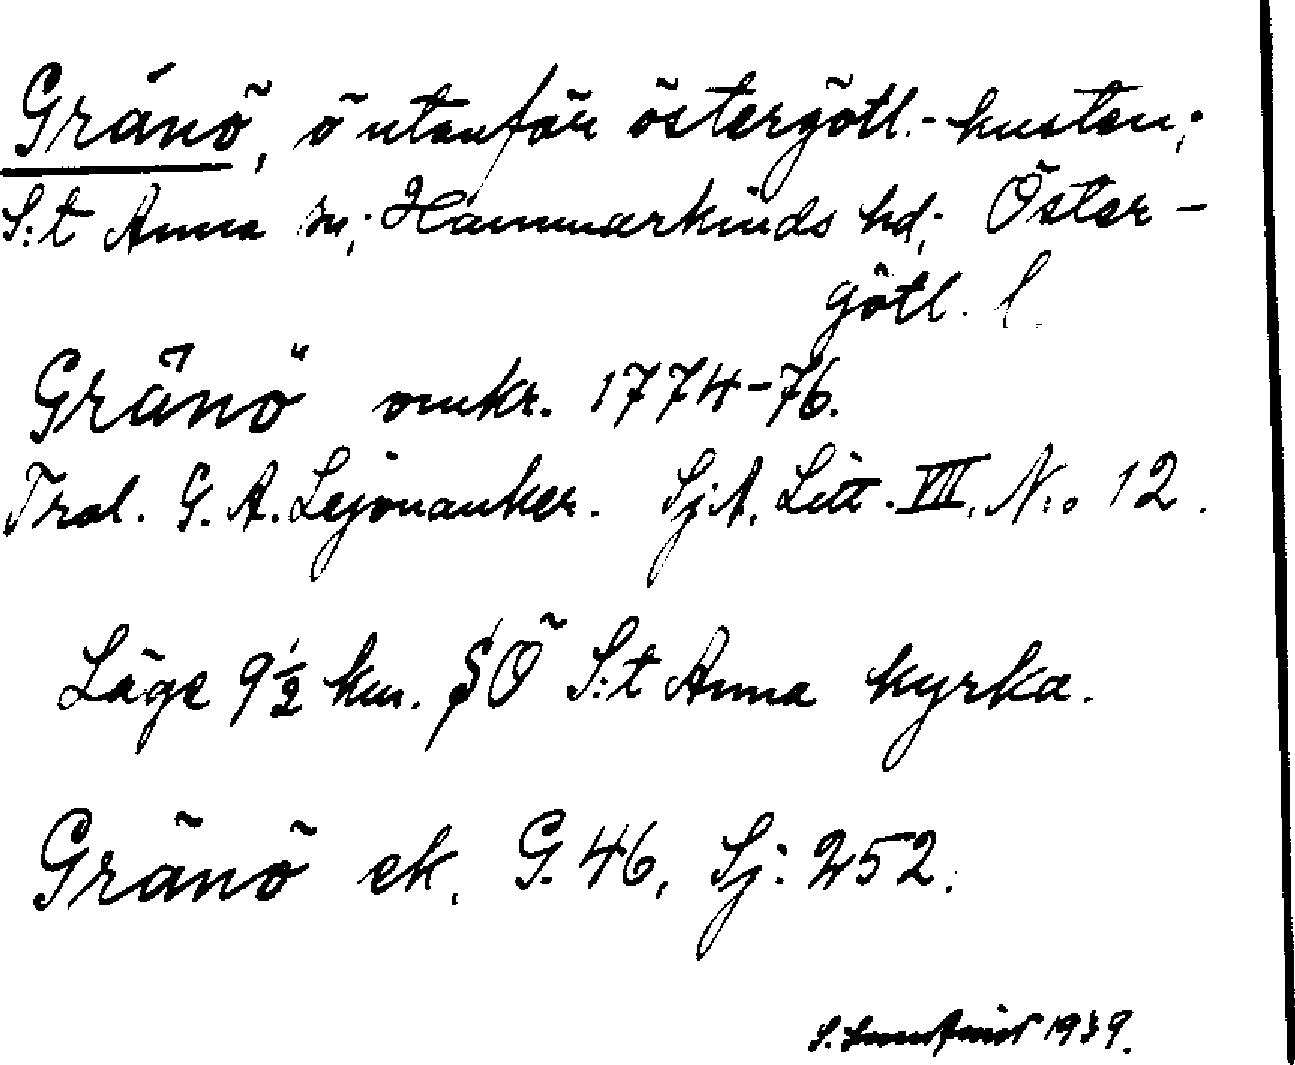 Gränö, ö utanför östergötl.-kusten;
S:t Anna sn; Hammarkinds hd; Öster-
götl. l.
Gränö omkr. 1774-76.
Trol. G. A. Lejonanker. Sj.A. Litt. VII, N:o 12.
Läge 9½ km. SÖ S:t Anna kyrka.
Gränö ek. G. 46, Sj: 252.
1939.